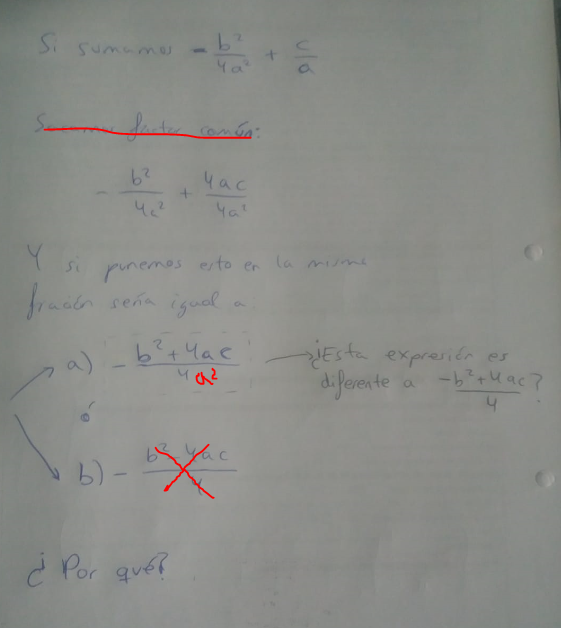 Si sumamos - b²/4a² + c/a
Sacamos factor común:
- b²/4a² + 4ac/4a²
Y si ponemos esto en la misma
fracción sería igual a
a) - b²+4ac/4a² → ¿Esta expresión es
diferente a -b²+4ac/4?
ó
b) - b²-4ac/4
¿Por qué?